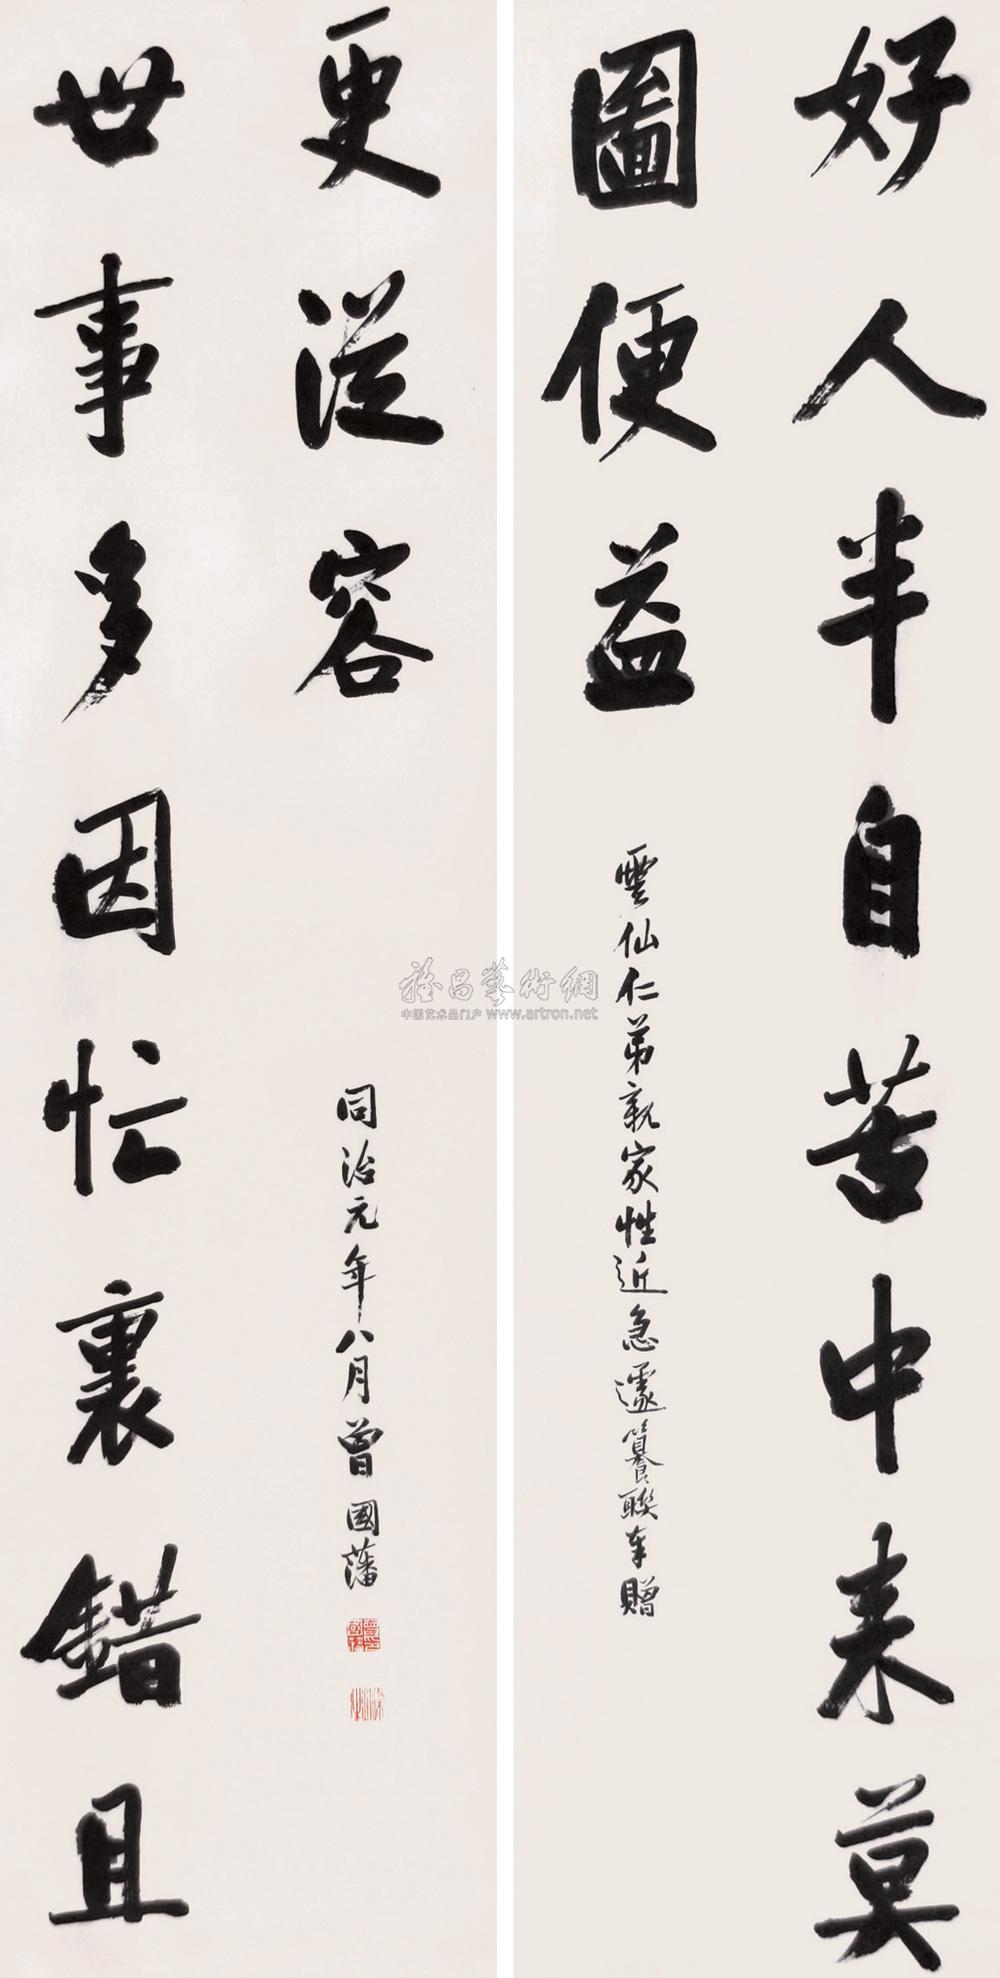 好人半自苦中来莫
圖便益
雲仙仁弟親家性近急遽籑聯奉贈
世事多因忙裏錯且
更從容
同治元年八月曾國藩
雅昌藝術網
中国艺术品门户 www.artron.net